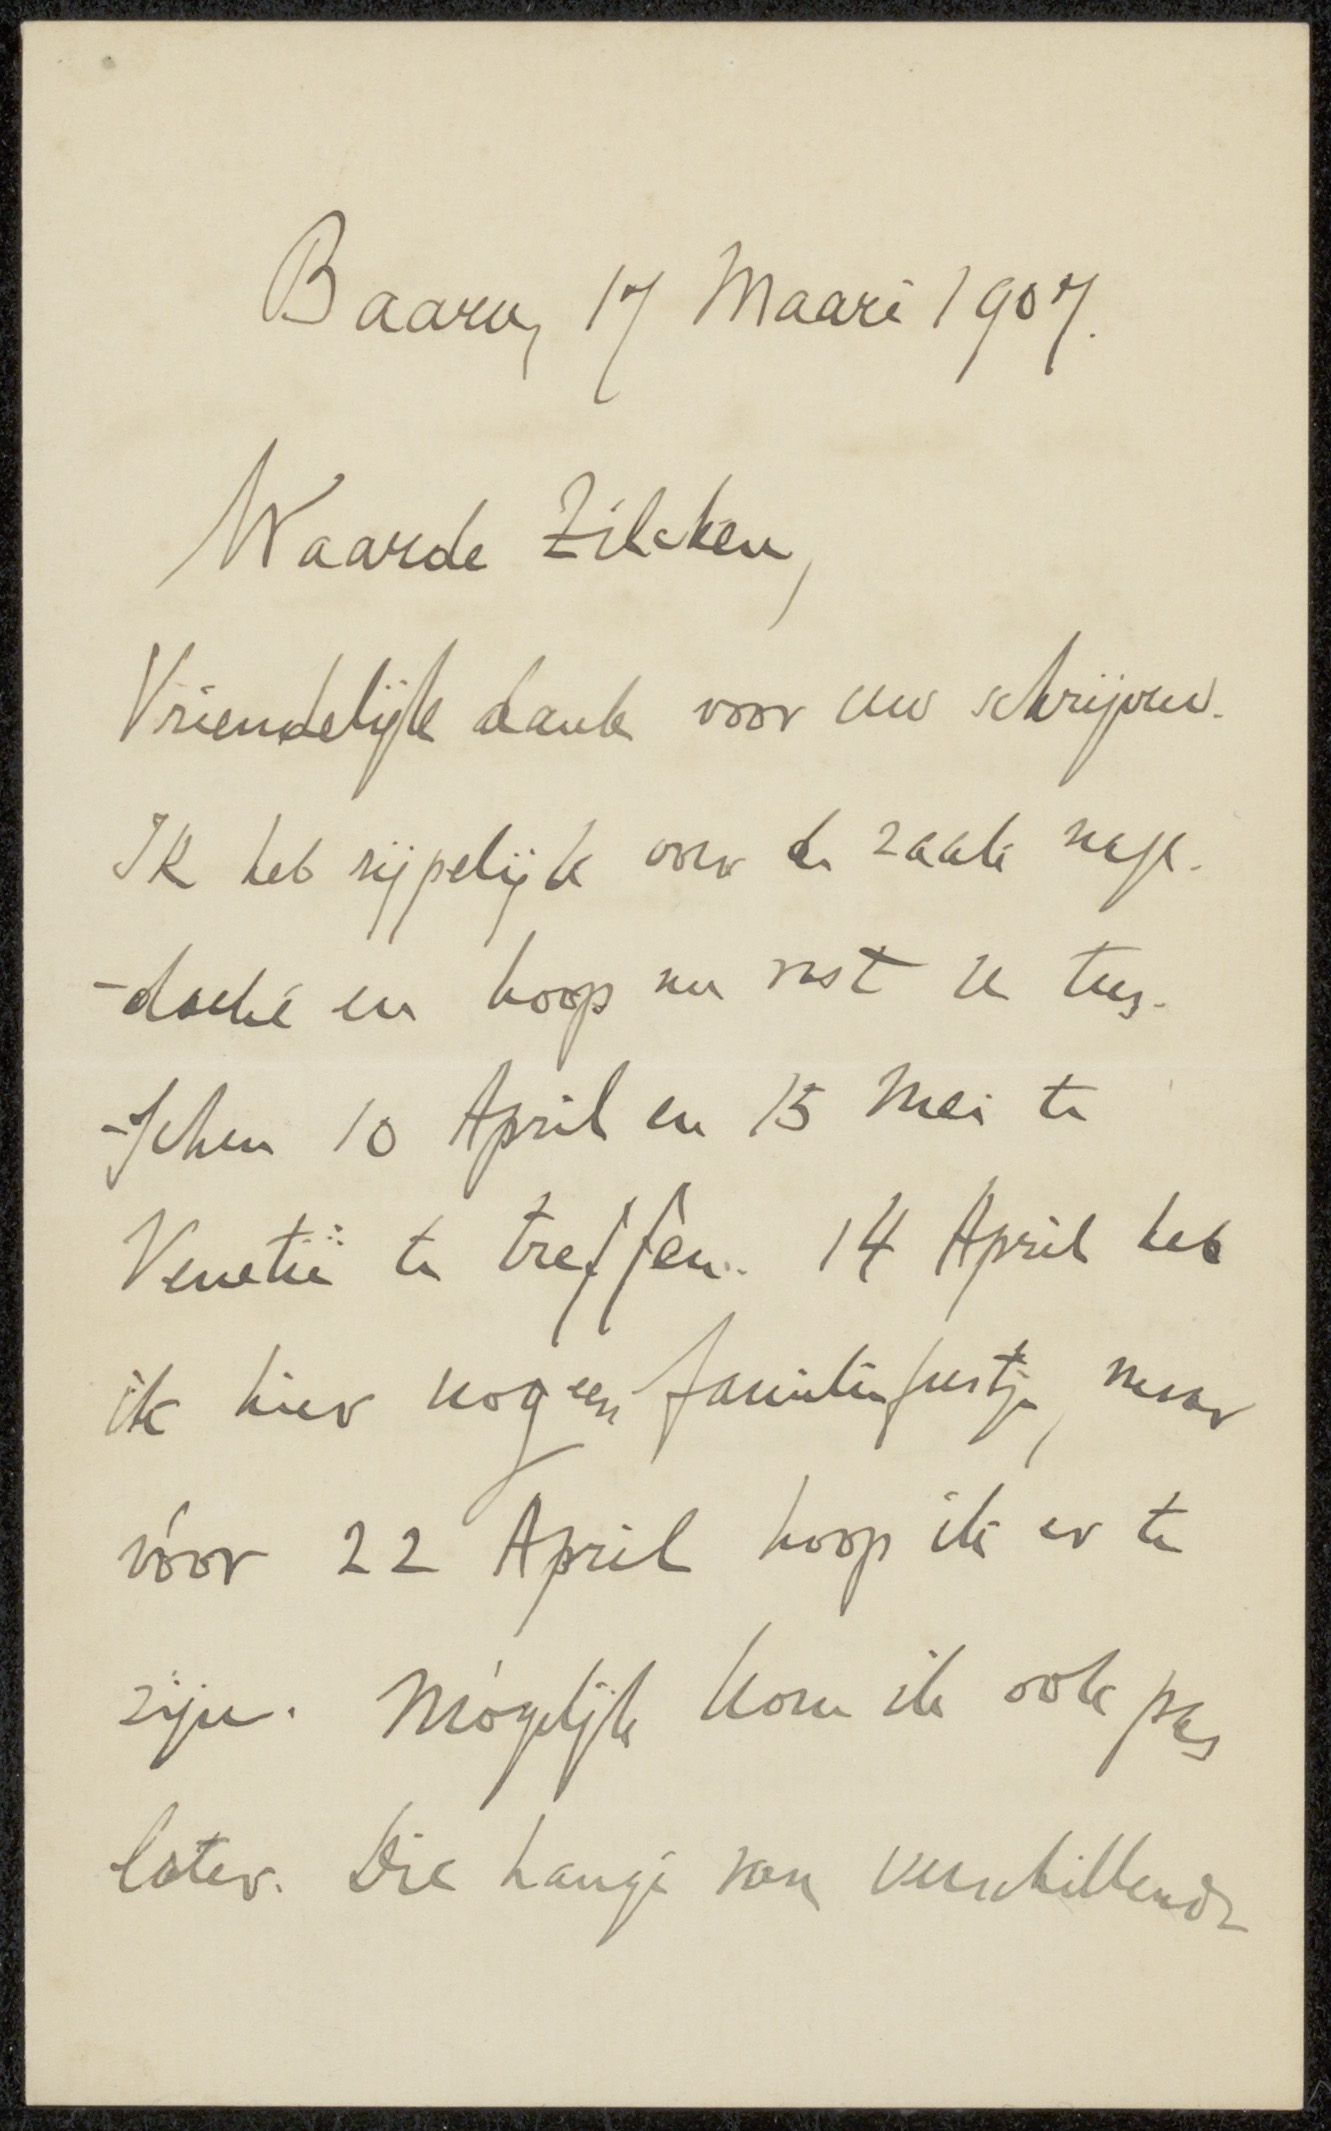 Baarn, 17 Maart 1907.
Waarde Zilcken,
Vriendelijk dank voor uw schrijven.
Ik heb rijpelijk over de zaak nage-
-dacht en hoop nu vast u tus-
-schen 10 April en 15 Mei te
Venetië te treffen. 14 April heb
ik hier nog een familiefeestje, maar
vóor 22 April hoop ik er te
zijn. Mógelijk kom ik ook pas
later. Die hangt van verschillende